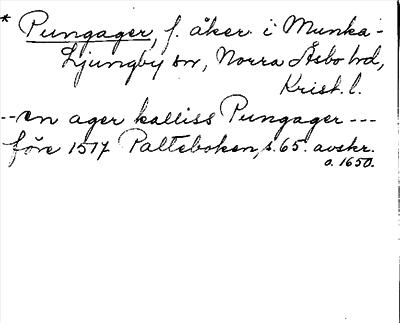 * Pungager, f. åker i Munka-
Ljungby sn, Norra Åsbo hd,
Krist. l.
--en ager kalliss Pungager ---
före 1517 Palteboken, s. 65. avskr.
o. 1650.